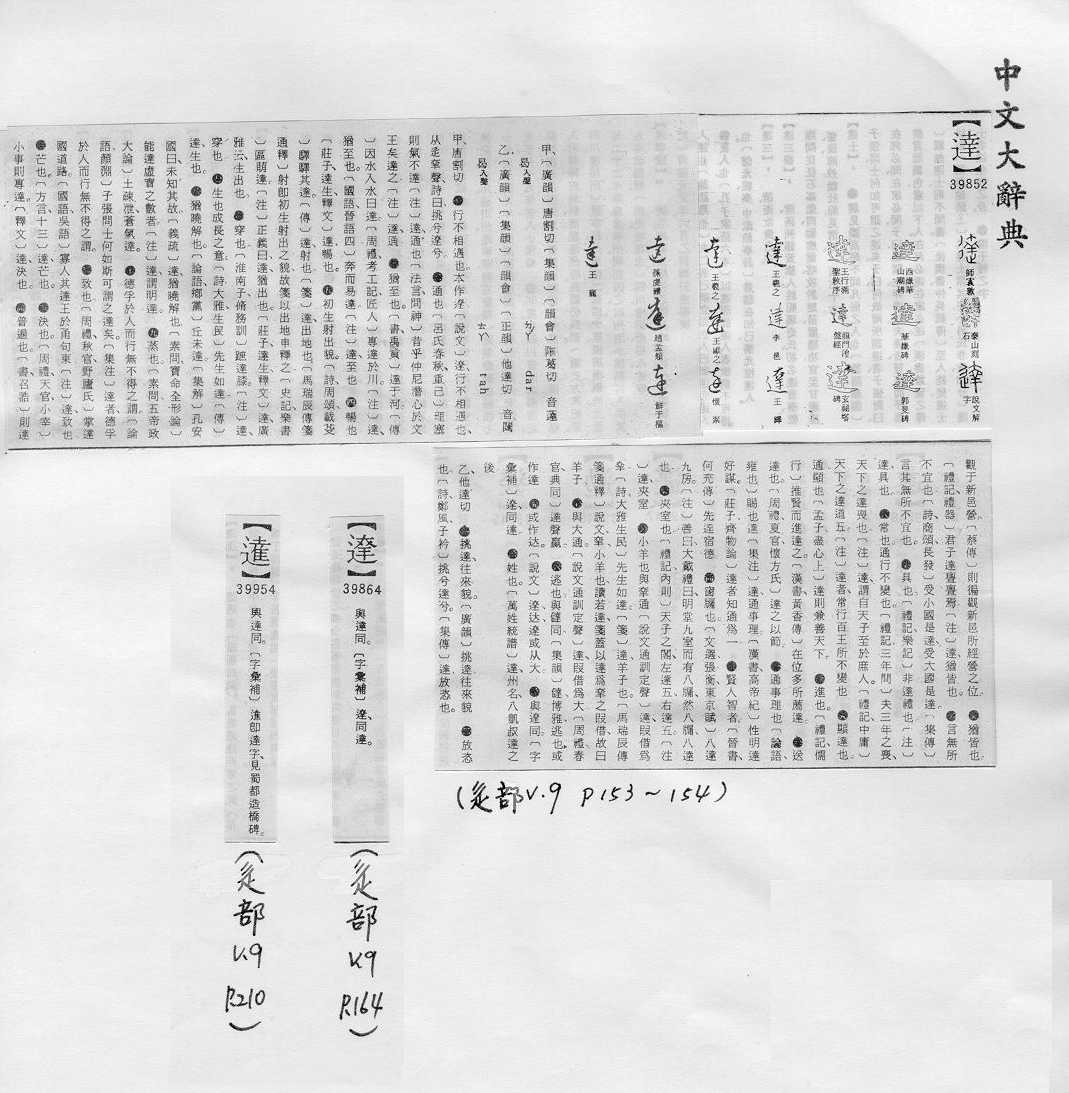 中文大辭典
【達】
39852
師𡩜敦
泰山刻石
說文解字
西嶽華山廟碑
華嶽碑
郭旻碑
王行滿聖教序
龍門沧盤經
玄秘塔碑
王羲之
李邕
王鐸
王羲之
王獻之
懷素
孫虔禮
趙孟頫
鮮于樞
王寵
甲、〔廣韻〕唐割切〔集韻〕〔韻會〕陁葛切 音薘
曷入聲 ㄉㄚˊ dar
乙、〔廣韻〕〔集韻〕〔韻會〕〔正韻〕他達切 音闥
曷入聲 ㄊㄚˋ tah
甲、唐割切 ㊀行不相遇也本作達〔說文〕達行不相遇也、
从辵羍聲詩曰挑兮達兮 ㊁通也〔呂氏春秋重己〕理塞
則氣不達〔注〕達通也〔法言問神〕昔乎仲尼潛心於文
王矣達之〔注〕達通 ㊂猶至也〔書禹貢〕達于河〔傳
〕因水入水曰達〔周禮考工記匠人〕專達於川〔注〕達、
猶至也〔國語晉語四〕奔而易達〔注〕達至也 ㊃暢也
〔莊子達生釋文〕達暢也 ㊄初生射出貌〔詩周頌載芟
〕驛驛其達〔傳〕達射也〔箋〕達出地也〔馬瑞辰傳箋
通釋〕射卽初生射出之貌故箋以出地申釋之〔史記樂書
〕區萌達〔注〕正義曰達猶出也〔莊子達生釋文〕達廣
雅云生出也 ㊅穿也〔淮南子脩務訓〕蹠達膝〔注〕達
穿也 ㊆生也成長之意〔詩大雅生民〕先生如達〔傳〕
達生也 ㊇猶曉解也〔論語鄉黨〕丘未達〔集解〕孔安
國曰未知其故〔義疏〕達猶曉解也〔素問寶命全形論〕
能達虛實之數者〔注〕達謂明達 ㊈蒸也〔素問五帝政
大論〕土疎泄蒼氣達 ㊉德孚於人而行無不得之謂〔論
語顏淵〕子張問士何如斯可謂之達矣〔集注〕達者德孚
於人而行無不得之謂 致也〔周禮秋官野廬氏〕掌達
國道路〔國語吳語〕寡人其達王於甬句東〔注〕達致也
芒也〔方言十三〕達芒也 決也〔周禮天官小宰〕
小事則專達〔釋文〕達決也 普遍也〔書召誥〕則達
觀于新邑營〔蔡傳〕則徧觀新邑所經營之位 猶皆也
〔禮記禮器〕君子達亹亹焉〔注〕達猶皆也 言無所
不宜也〔詩商頌長發〕受小國是達受大國是達〔集傳〕
言其無所不宜也 具也〔禮記樂記〕非達禮也〔注〕
達具也 常也通行不變也〔禮記三年問〕夫三年之喪
天下之達喪也〔注〕達謂自天子至於庶人〔禮記中庸〕
天下之達道五〔注〕達者常行百王所不變也 顯達也
通顯也〔孟子盡心上〕達則兼善天下 進也〔禮記儒
行〕推賢而進達之〔漢書黃香傳〕在位多所薦達 送
達也〔周禮夏官懷方氏〕達之以節 通事理也〔論語
雍也〕賜也達〔集注〕達通事理〔漢書高帝紀〕性明達
好謀〔莊子齊物論〕達者知通為一 賢人智者〔晉書
何充傳〕先達宿德 窗牖也〔文選張衡東京賦〕八達
九房〔注〕善曰大戴禮曰明堂九室而有八牖然八牖八達
也 夾室也〔禮記內則〕天子之閣左達五右達五〔注
〕達夾室 小羊也與羍通〔說文通訓定聲〕達叚借爲
羍〔詩大雅生民〕先生如達〔箋〕達羊子也〔馬瑞辰傳
箋通釋〕說文羍小羊也讀若達箋蓋以達爲羍之叚借故曰
羊子 與大通〔說文通訓定聲〕達叚借為大〔周禮春
官典同〕達聲贏 逃也與㒓同〔集韻〕㒓博雅逃也或
作達 或作迖〔說文〕達迖達或从大 與逹同〔字
彙補〕逹同達 姓也〔萬姓統譜〕達州名八凱叔達之
後
乙他達切 挑達往來貌〔廣韻〕挑達往來貌 放恣
也〔詩鄭風子衿〕挑兮達兮〔集傳〕達放恣也
(辵部 V.9 P153～154)
【逹】
39864
與達同。〔字彙補〕逹、同達。
(辵部 V.9 P.164)
【𨔶】
39954
與達同。〔字彙補〕𨔶卽達字見蜀都造橋碑。
(辵部 V.9 P.210)